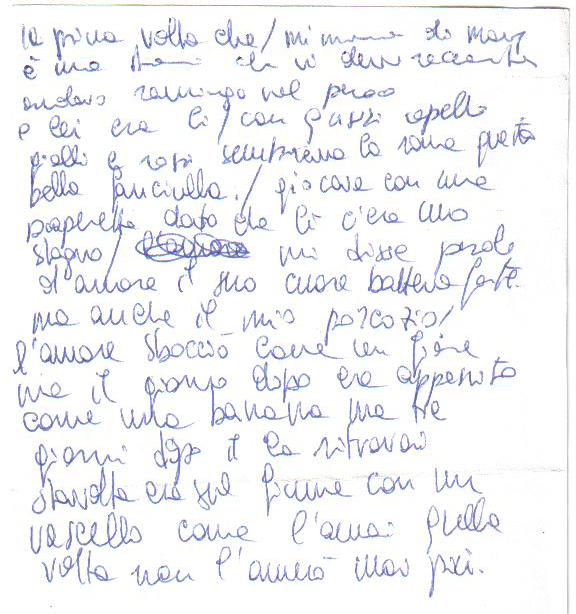 la prima volta che / mi innamorai di mary
è una storia che vi devo raccontare
andavo ramingo nel parco
e lei era lì / con quei capelli
gialli e rossi sembrava la roma questa
bella fanciulla. / giocava con una
paperella dato che lì c'era uno
stagno / mi disse parole
d'amore il suo cuore batteva forte
ma anche il mio porcozio /
l'amore sbocciò come un fiore
ma il giorno dopo era appassito
come una banana ma tre
giorni dopo il la ritrovai
stavolta era sul fiume con un
vascello come l'amai quella
volta non l'amerò mai più.